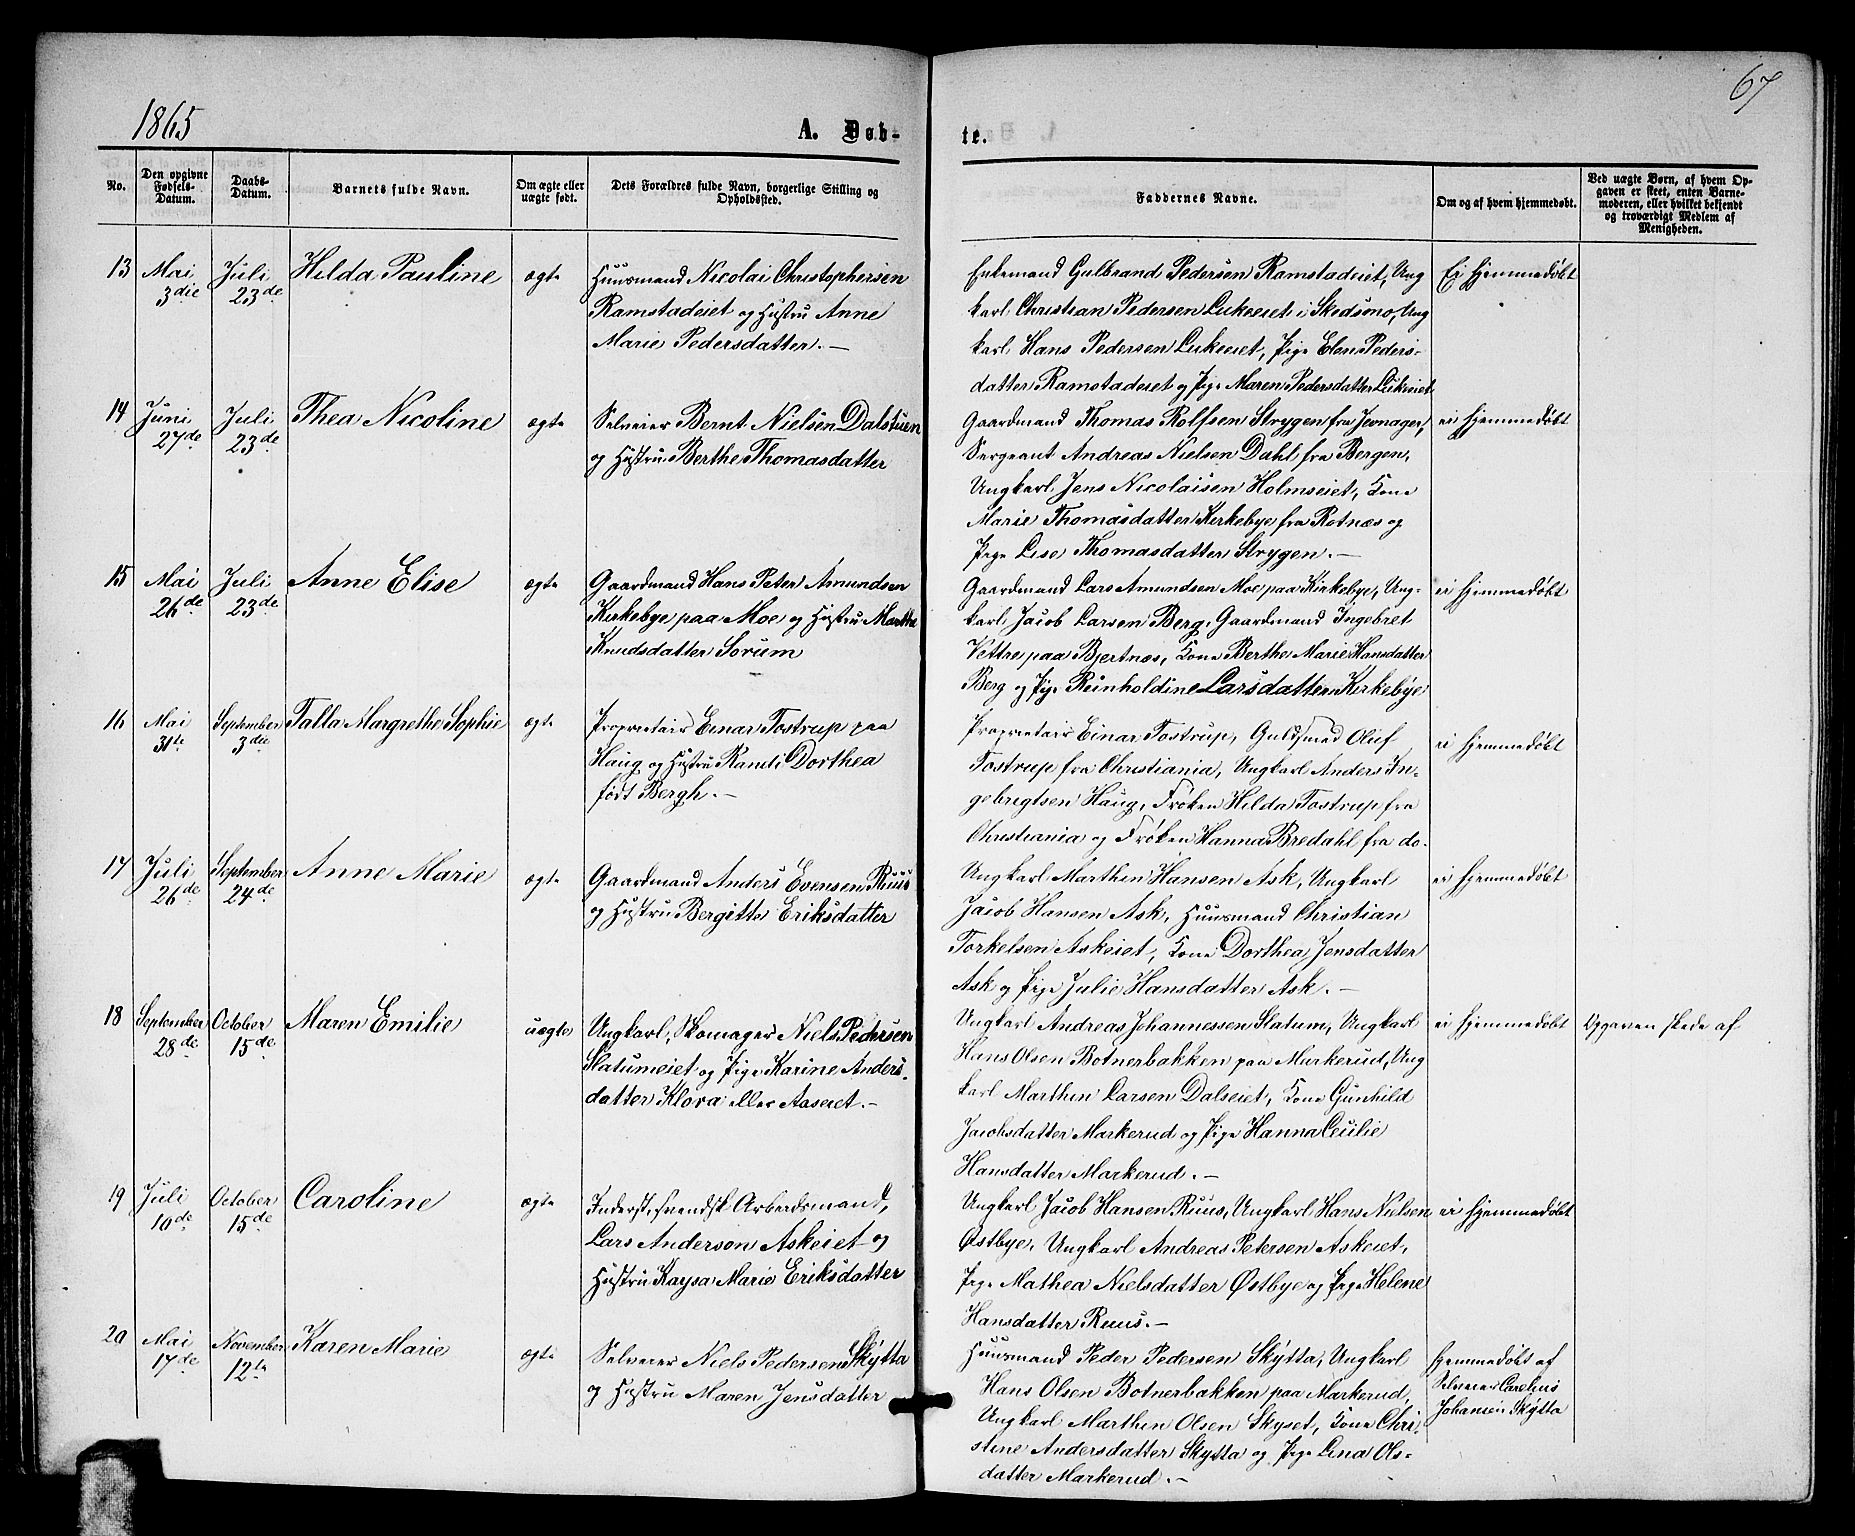 1865
67
A. Døb-
te.
No.
Den opgivne
Fødsels-
Datum.
Daabs-
Datum.
Barnets fulde Navn.
Om ægte eller
uægte født.
Dets Forældres fulde Navn, borgerlige Stilling og
Opholdssted.
Faddernes Navne.
Om og af hvem hjemmedøbt.
Ved uægte Børn, af hvem Op-
gaven er skeet, enten Barne-
moderen, eller hvilket bekjendt
og troværdigt Medlem af
Menigheden.
13
Mai
3die
Juli
23de
Hilda Pauline
ægte
Huusmand Nicolai Christophersen
Ramstadeiet og Hustru Anne
Marie Pedersdatter.-
Enkemand Gulbrand Pedersen Ramstadeiet, Ung
karl Christian Pedersen Lukeeiet i Skedsmo, Ung
karl Hans Pedersen Lukeeiet, Pige Elen Peders-
datter Ramstadeiet og Pige Maren Pedersdatter Lukeiet
Ei hjemmedøbt
14
Juni
27de
Juli
23de
Thea Nicoline
ægte
Selveier Bernt Nielsen Dalstuen
og Hustru Berthe Thomasdatter
Gaardmand Thomas Rolfsen Strygen fra Jevnager,
Sergeant Andreas Nielsen Dahl fra Bergen,
Ungkarl Jens Nicolaisen Holmseiet, Kone
Marie Thomasdatter Kirkebye fra Rotnæs og
Pige Lise Thomasdatter Strygen.-
ei hjemmedøbt
15
Mai
26de
Juli
23de
Anne Elise
ægte
Gaardmand Hans Peter Amundsen
Kirkebye paa Moe og Hustru Marthe
Knudsdatter Sørum
Gaardmand Lars Amundsen Moe paa Kirkebye, Ung-
karl Jacob Larsen Berg, Gaardmand Ingebret
Vettre paa Bjertnæs, Kone Berthe Marie Hansdatter
Berg og Pige Reinholdine Larsdatter Kirkebye
ei hjemmedøbt
16
Mai
31te
September
3die
Talla Margrethe Sophie
ægte
Proprietair Einar Tostrup paa
Haug og Hustru Randi Dorthea
født Bergh.-
Proprietair Einar Tostrup, Guldsmed Oluf
Tostrup fra Christiania, Ungkarl Anders In-
gebrigtsen Haug, Frøken Hilda Tostrup fra
Christiania og Frøken Hanna Bredahl fra do.
ei hjemmedøbt
17
Juli
26de
September
24de
Anne Marie
ægte
Gaardmand Anders Evensen Ruus
og Hustru Bergitte Eriksdatter
Ungkarl Marthin Hansen Ask, Ungkarl
Jacob Hansen Ask, Huusmand Christian
Torkelsen Askeiet, Kone Dorthea Jensdatter
Ask og Pige Julie Hansdatter Ask.-
ei hjemmedøbt
18
September
28de
October
15de
Maren Emilie
uægte
Ungkarl, Skomager Niels Pedersen
Slatumeiet og Pige Karine Anders-
datter Klova eller Aaseiet.-
Ungkarl Andreas Johannessen Slatum, Ungkarl
Hans Olsen Botnerbakken paa Markerud, Ung
karl Marthin Larsen Dalseiet, Kone Gunhild
Jacobsdatter Markerud og Pige Hanna Cecilie
Hansdatter Markerud.-
ei hjemmedøbt
Opgaven skede af
19
Juli
10de
October
15de
Caroline
ægte
Inderst, svendsk Arbeidsmand,
Lars Anderson Askeiet og
Hustru Kaysa Marie Eriksdatter
Ungkarl Jacob Hansen Ruus, Ungkarl Hans Nielsen
Østbye, Ungkarl Andreas Petersen Askeiet,
Pige Mathea Nielsdatter Østbye og Pige Helene
Hansdatter Ruus.-
ei hjemmedøbt
20
Mai
17de
November
12te
Karen Marie
ægte
Selveier Niels Pedersen Skytta
og Hustru Maren Jensdatter
Huusmand Peder Pedersen Skytta, Ungkarl
Hans Olsen Botnerbakken paa Markerud,
Ungkarl Marthin Olsen Skyset, Kone Chri-
stine Andersdatter Skytta og Pige Lina Ols-
datter Markerud.-
hjemmedøbt af
Selveier Carelius
Johansen Skytta